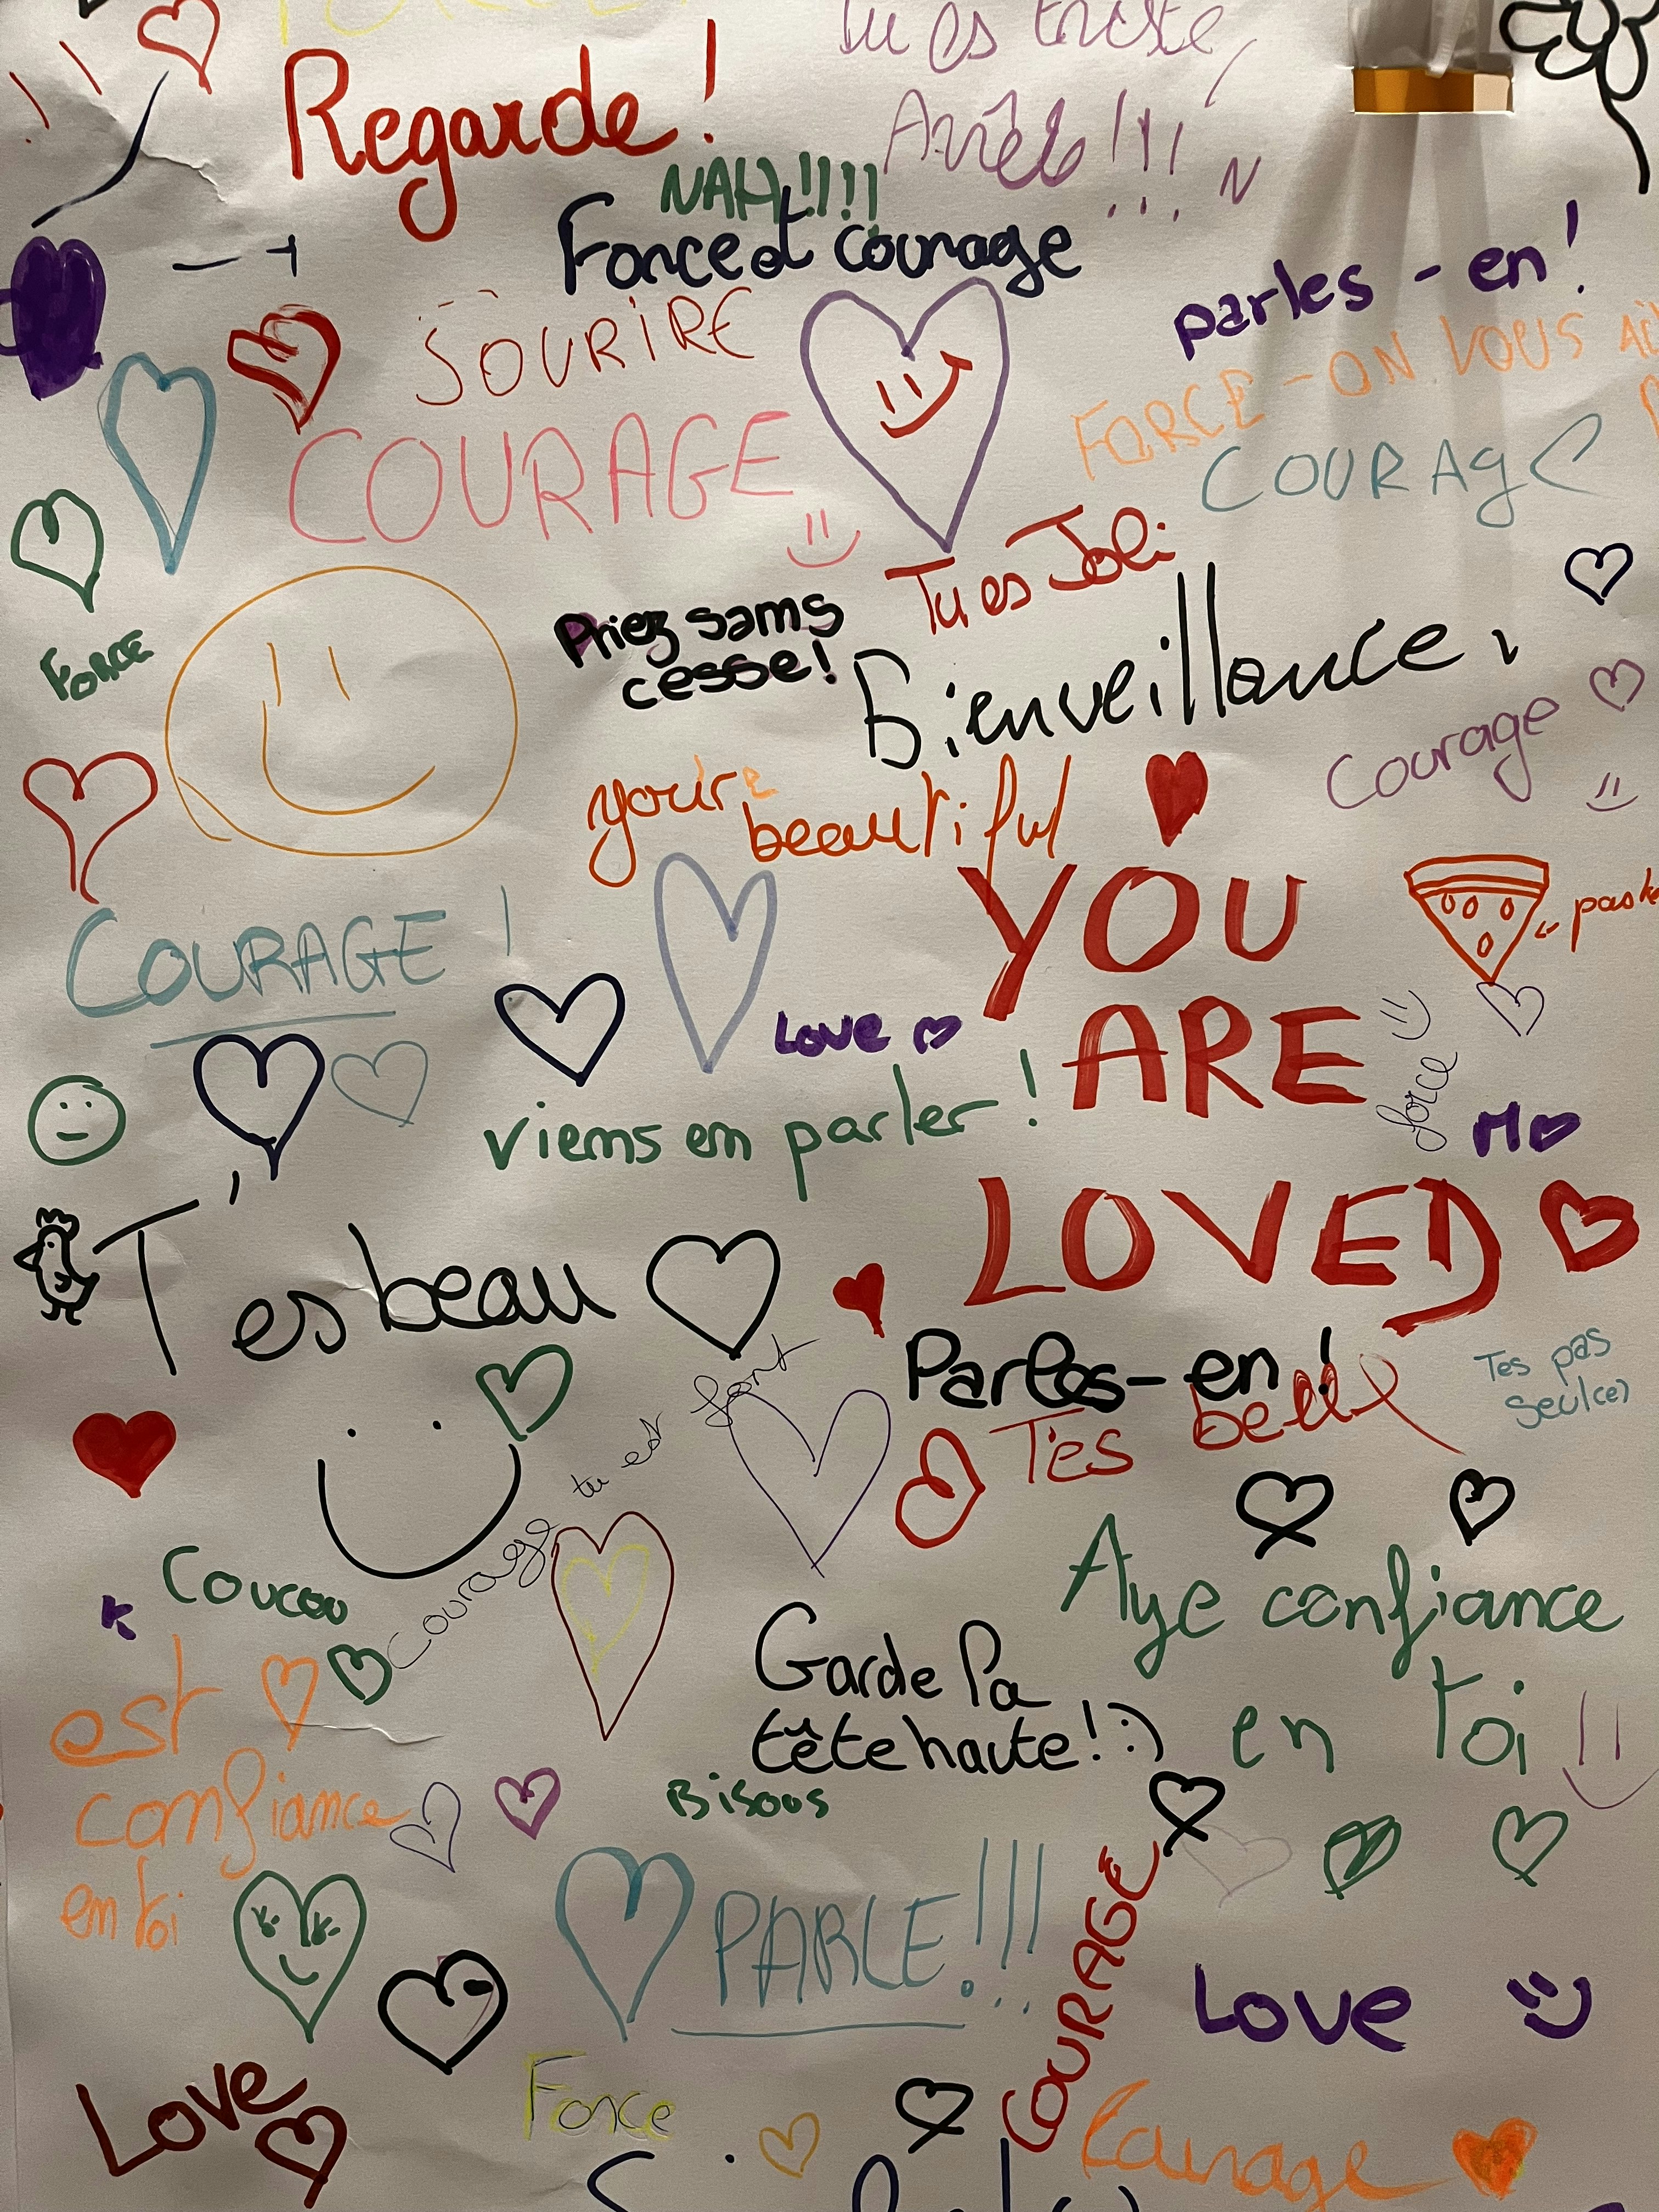 Regarde !
Tu es triste,
Arrête !!!
NAH !!!!!
Force et courage
parles-en !
SOURIRE
FORCE - ON VOUS
COURAGE
COURAGE
Tu es Joli
Priez sans
cesse !
Bienveillance
FORCE
Courage
your
beautiful
YOU
ARE
LOVED
COURAGE !
Love
force
viens en parler !
M
T'es beau
Parles-en !
T'es belle
Tes pas
seul(e)
tu est fort
Courage
Coucou
K
Aye confiance
en toi
Garde la
tête haute ! :)
est
confiance
en toi
Bisous
PARLE !!!
COURAGE
Love
Love
Force
Courage